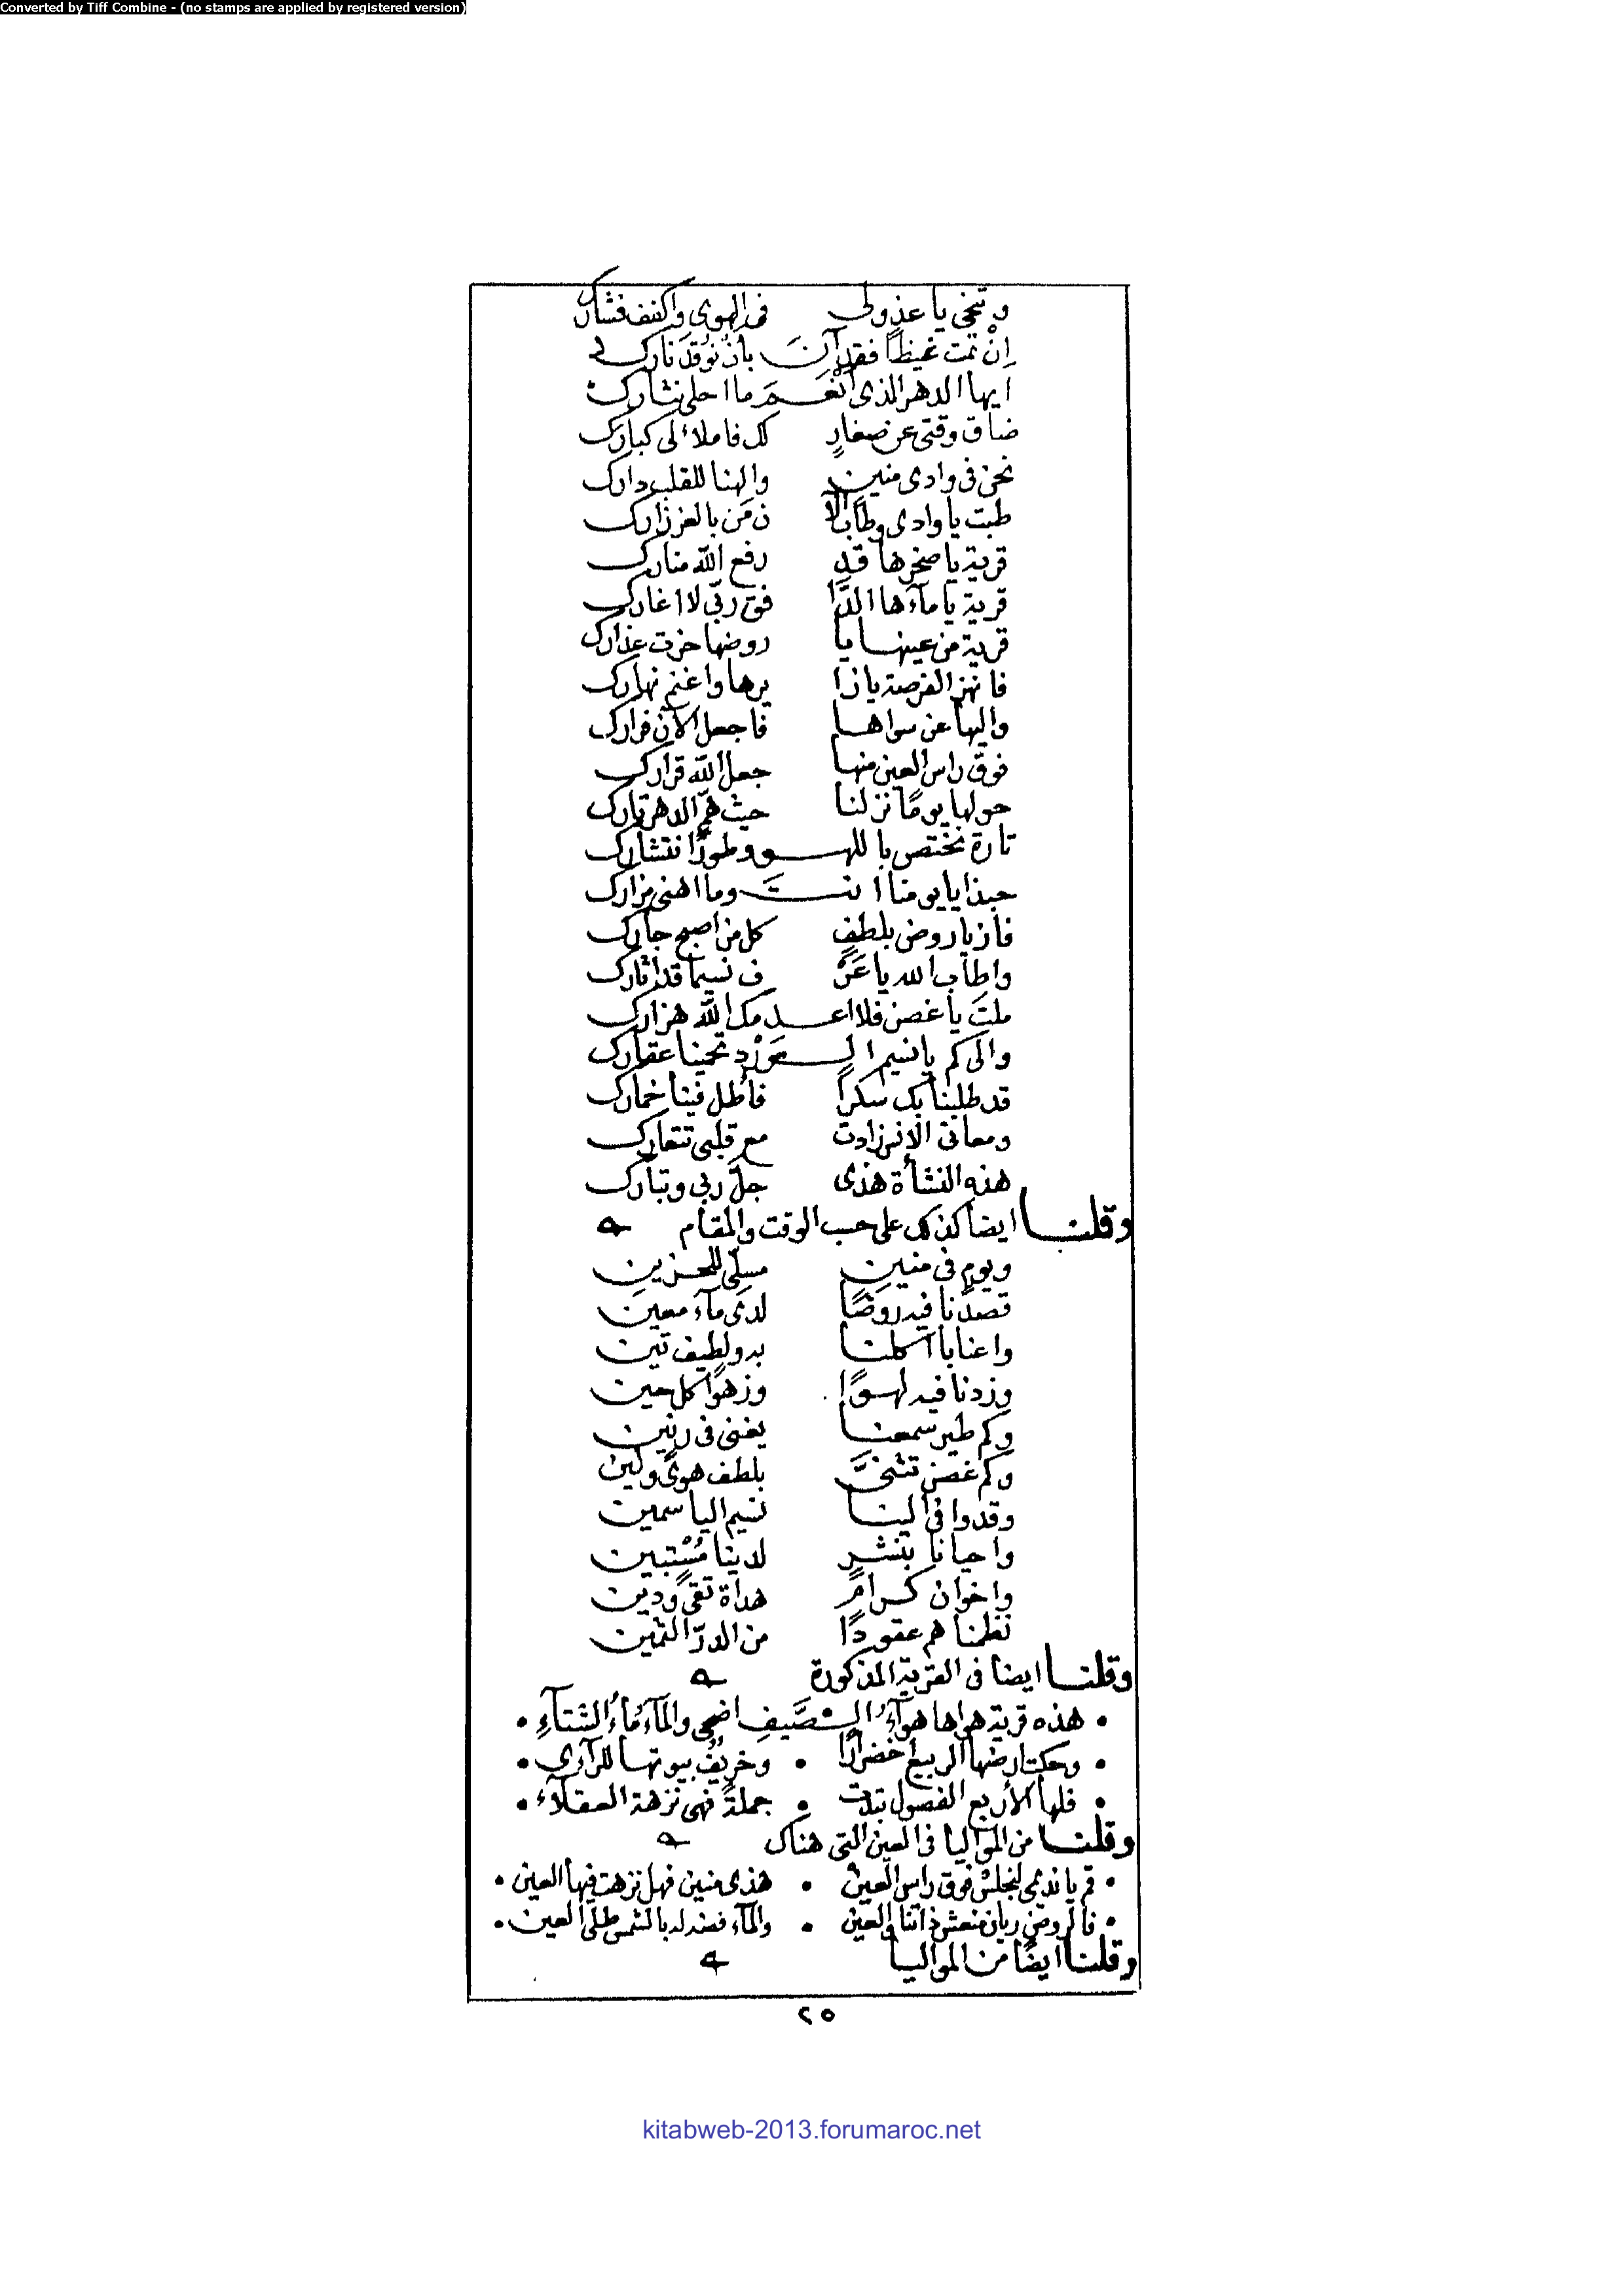 Converted by Tiff Combine - (no stamps are applied by registered version)
وتنحى يا عذولى فى الهوى واكفف فشارك
إنْ تمت غيظاً فقد آنَ بأن تُوقدَ نارك
ايها الدهر الذى أنْعَمَ ما احلى نثارك
ضاق وقتى عن صغارٍ لك فاملاء لى كبارك
نحن فى وادى منين والهنا للقلب دارك
طبت يا وادى وطاب الآ ن مَن بالعز زارك
قرية يا صخرها قدِ رفع الله منارك
قرية يا ماءَها الدَّا فق ربّى لا اغارك
قرية من عينها يا روضها حزت عذارك
فانهز الفرصة يازا يرها واغنم نهارك
واليها عن سواها فاجعل الآن فرارك
فوق راس العين منها جعل الله قرارك
حولها يومًا نزلنا حيث همّ الدهر تارك
تارة نختص باللهـ ـو وطورًا نتشارك
حبذا يا يومنا انتَ وما اهنى مزارك
فاز يا روض بلطفٍ كل من اصبح جارك
واطاب الله يا عَرْ ف نسيما قد اثارك
ملتَ يا غصن فلا اعدمك الله هزارك
والى كم يا نسيم الـ ـعَوْد تحيينا عقارك
قد طلبنا بك سكراً فأطل فينا خمارك
ومعانى الانس زادت مع قلبى تتعارك
هذه النشأة هذى جلّ ربى وتبارك
وقلنا ايضا كذلك على حسب الوقت والمقام
ويومٍ فى منينِ مسلّى للحزينِ
قصدنا فيه روضًا لدى مآء معينِ
واعنابا اكلنا به ولطيف تين
وزدنا فيه لهوًا وزهوًا كل حين
وكم طير سمعنا يغنى فى رنين
وكم غصن تثنىَّ بلطف هوىً ولين
وقد وافى الينا نسيم الياسمين
واحيانا بنشرٍ لدينا مُسْتبين
واخوان كرامٍ هداة تقىً ودين
نظمناهم عقودًا من الدرّ الثمين
وقلنا ايضا فى القرية المذكورة
• هذه قرية هواها هوآءُ الـصَّيفِ اضحى والمآءُ مآءُ الشتآءِ •
• وحكت ارضها الربيع اخضرارًا • وخريفٌ بيوتها للرآءى •
• فلها الأربع الفصول تبدت • جملةً فهى نزهة العقلآء •
وقلنا من المواليا فى العين التى هناك
• قم يا نديمى لنجلس فوق راس العين • هذى منين فهل نزهت فيها العين •
• فالروض ريان منعش ذاتنا والعين • والمآء فضه له بالشمس طلى العين •
وقلنا ايضًا من المواليا
٢٥
kitabweb-2013.forumaroc.net